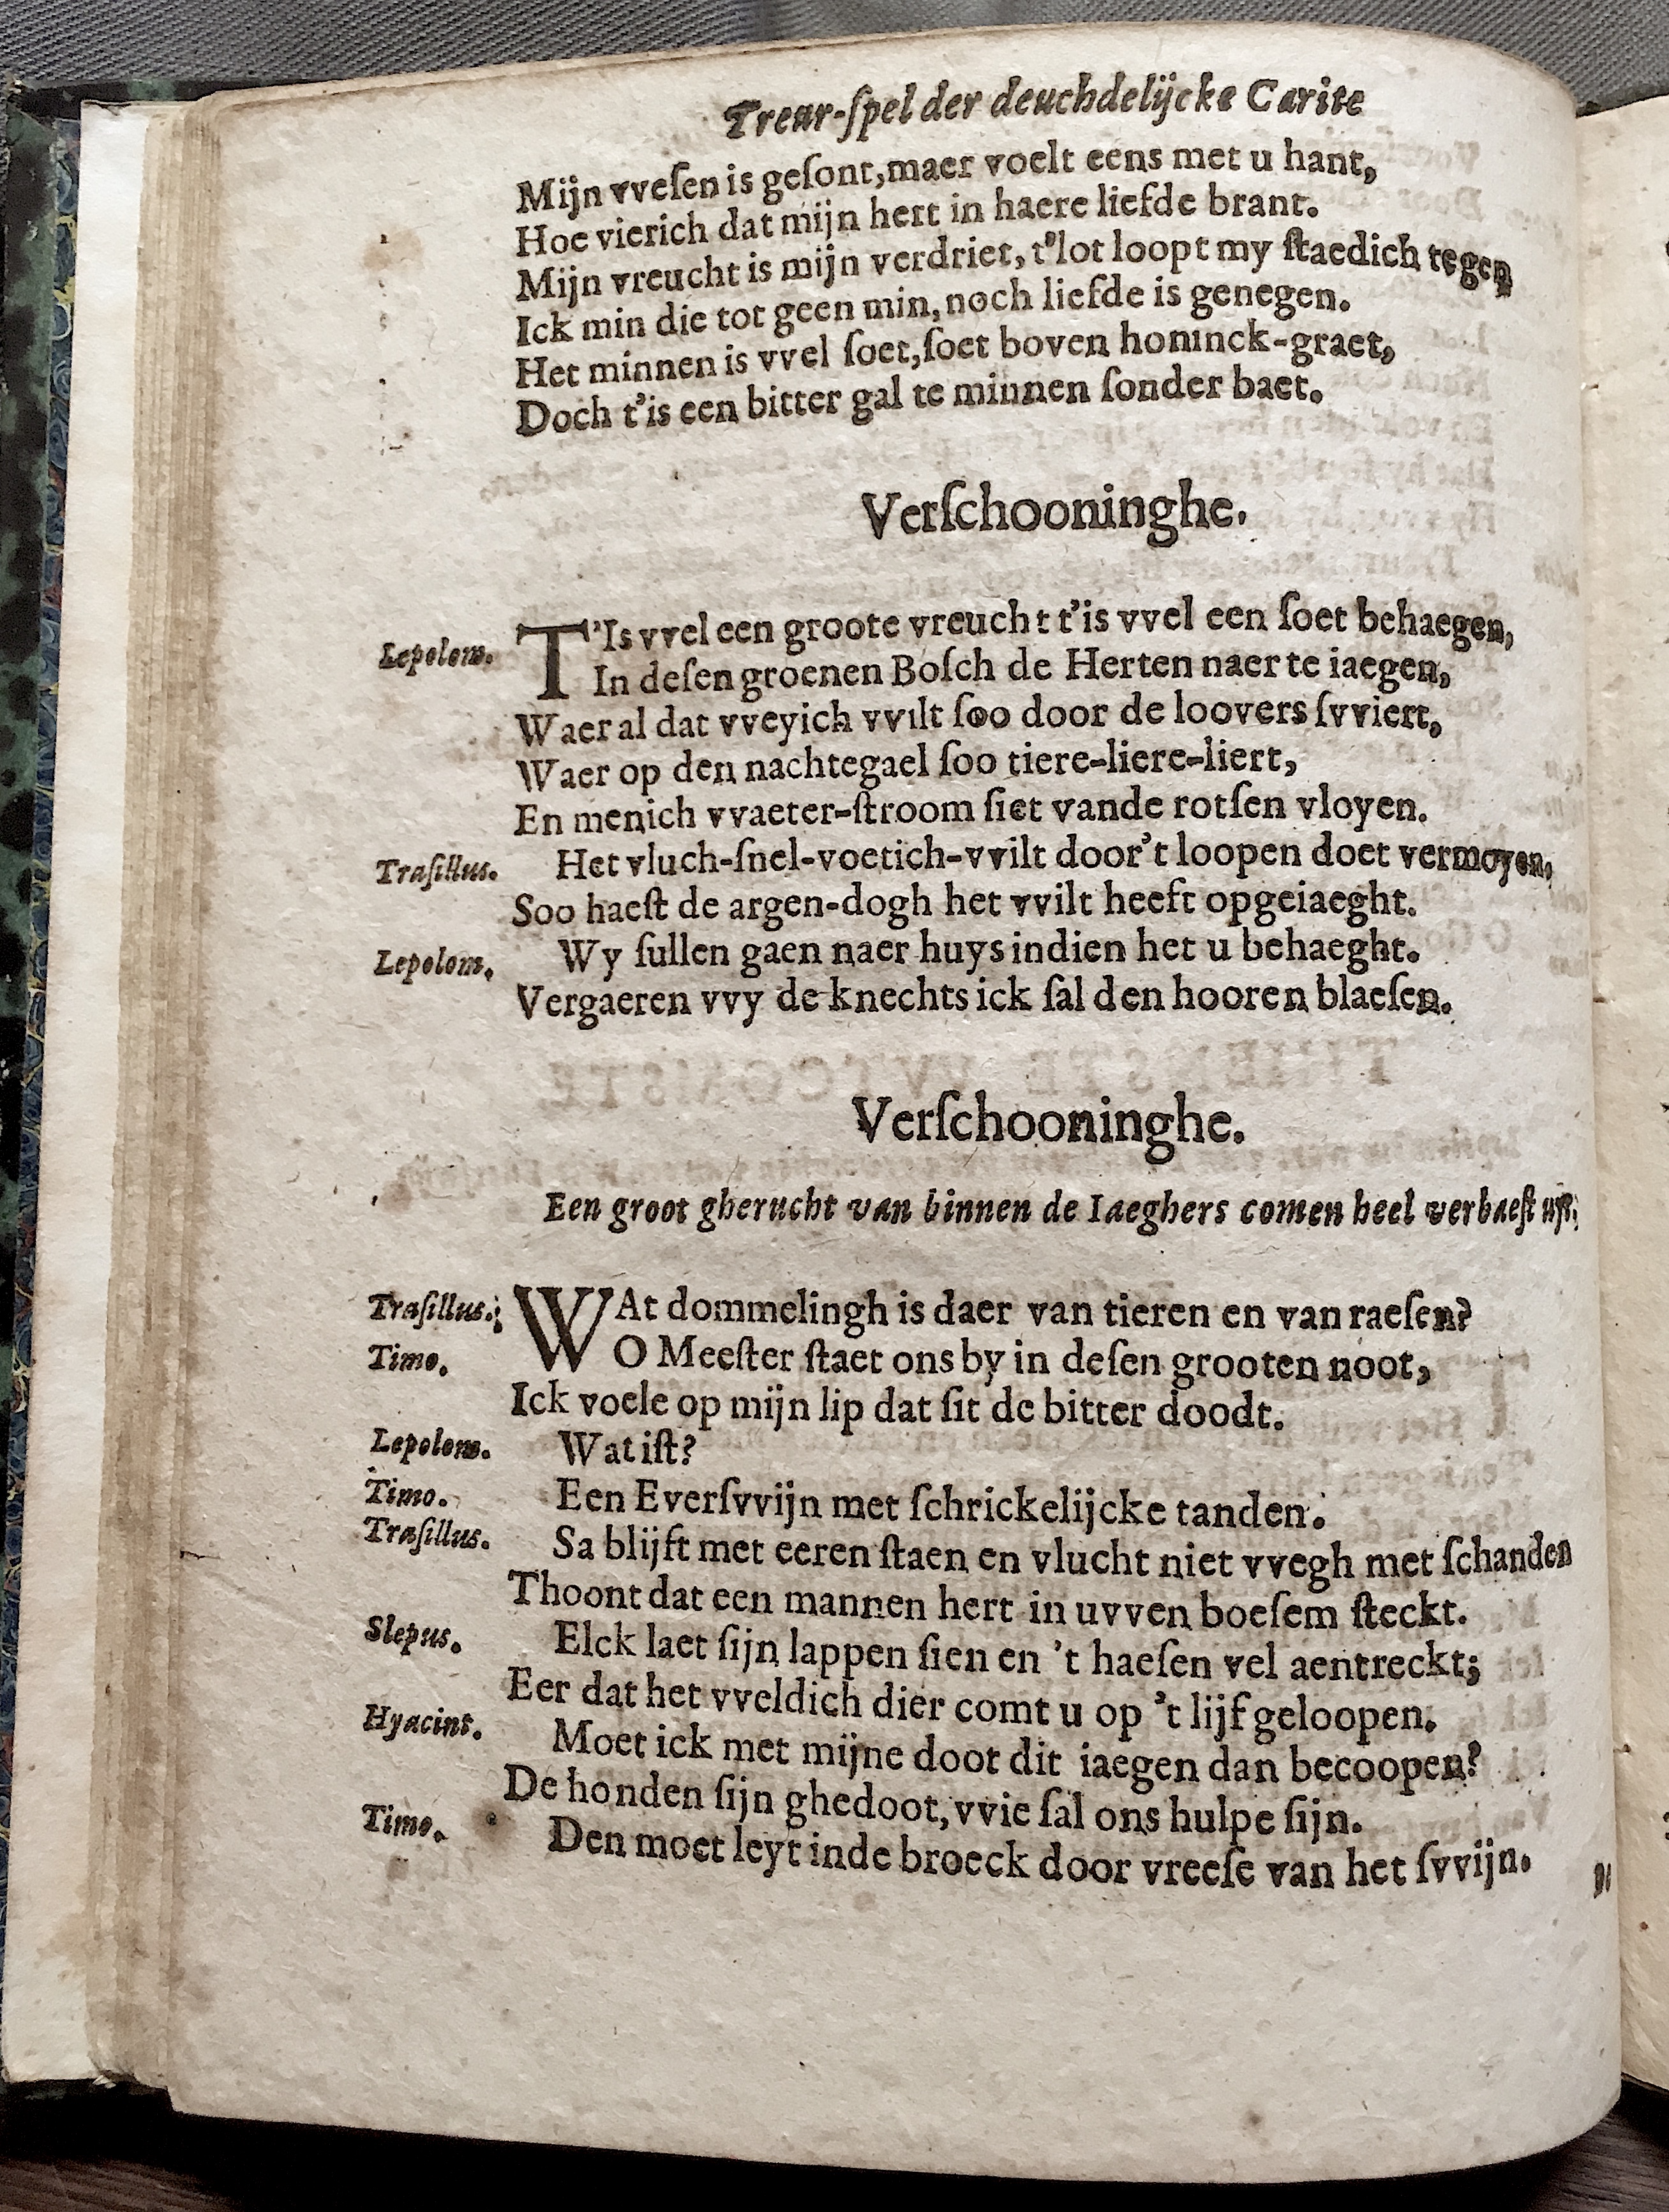 Treur-ſpel der deuchdelijcke Carite
Mijn vveſen is geſont, maer voelt eens met u hant,
Hoe vierich dat mijn hert in haere liefde brant.
Mijn vreucht is mijn verdriet, t'lot loopt my ſtaedich tegen
Ick min die tot geen min, noch liefde is genegen.
Het minnen is vvel ſoet, ſoet boven honinck-graet,
Doch t'is een bitter gal te minnen ſonder baet.
Verſchooninghe.
Lepolem. T'Is vvel een groote vreucht t'is vvel een ſoet behaegen,
In deſen groenen Boſch de Herten naer te iaegen,
Waer al dat vveyich vvilt ſoo door de loovers ſvviert,
Waer op den nachtegael ſoo tiere-liere-liert,
En menich vvaeter-ſtroom ſiet vande rotſen vloyen.
Traſillus. Het vluch-ſnel-voetich-vvilt door't loopen doet vermoyen,
Soo haeſt de argen-dogh het vvilt heeft opgeiaeght.
Lepolem. Wy ſullen gaen naer huys indien het u behaeght.
Vergaeren vvy de knechts ick ſal den hooren blaeſen.
Verſchooninghe.
Een groot gherucht van binnen de Iaeghers comen heel verbaeſt uyt.
Traſillus. WAt dommelingh is daer van tieren en van raeſen?
Timo. O Meeſter ſtaet ons by in deſen grooten noot,
Ick voele op mijn lip dat ſit de bitter doodt.
Lepolem. Wat iſt?
Timo. Een Everſvvijn met ſchrickelijcke tanden.
Traſillus. Sa blijft met eeren ſtaen en vlucht niet vvegh met ſchanden
Thoont dat een mannen hert in uvven boeſem ſteckt.
Slepus. Elck laet ſijn lappen ſien en 't haeſen vel aentreckt;
Eer dat het vveldich dier comt u op 't lijf geloopen.
Hyacint. Moet ick met mijne doot dit iaegen dan becoopen?
De honden ſijn ghedoot, vvie ſal ons hulpe ſijn.
Timo. Den moet leyt inde broeck door vreeſe van het ſvvijn.